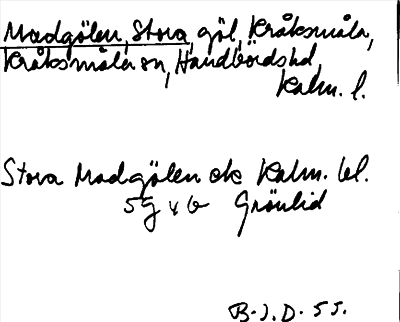 Madgölen, Stora, göl, Kråksmåla,
Kråksmåla sn, Handbörds hd,
Kalm. l.
Stora Madgölen ek Kalm. bl.
5 g v b Grönlid
B.J.D. 55.